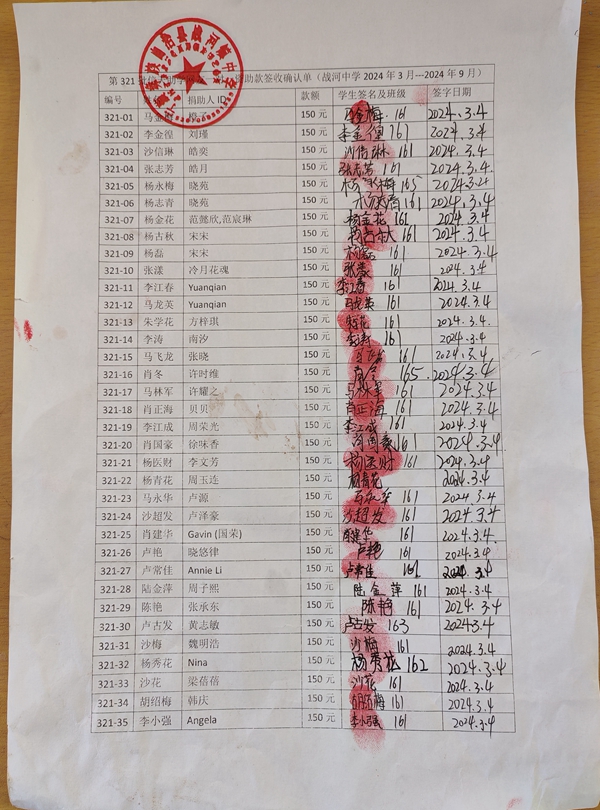 第 321 助款签收确认单（战河中学 2024 年 3 月---2024 年 9 月）
编号 捐助人 ID 款额 学生签名及班级 签字日期
321-01 马金 150 元 马金梅 161 2024.3.4
321-02 李金徨 刘瑾 150 元 李金徨 161 2024.3.4
321-03 沙信琳 皓奕 150 元 沙信琳 161 2024.3.4
321-04 张志芳 皓月 150 元 张志芳 161 2024.3.4
321-05 杨永梅 晓苑 150 元 杨永梅 165 2024.3.4
321-06 杨志青 晓苑 150 元 杨志青 161 2024.3.4
321-07 杨金花 范懿欣,范宸琳 150 元 杨金花 161 2024.3.4
321-08 杨古秋 宋宋 150 元 杨古秋 161 2024.3.4
321-09 杨磊 宋宋 150 元 杨磊 161 2024.3.4
321-10 张漾 冷月花魂 150 元 张漾 161 2024.3.4
321-11 李江春 Yuanqian 150 元 李江春 161 2024.3.4
321-12 马龙英 Yuanqian 150 元 马龙英 161 2024.3.4
321-13 朱学花 方梓琪 150 元 161 2024.3.4
321-14 李涛 南汐 150 元 李涛 161 2024.3.4
321-15 马飞龙 张晓 150 元 161 2024.3.4
321-16 肖冬 许时维 150 元 肖冬 165 2024.3.4
321-17 马林军 许耀之 150 元 马林军 161 2024.3.4
321-18 肖正海 贝贝 150 元 肖正海 161 2024.3.4
321-19 李江成 周荣光 150 元 李江成 161 2024.3.4
321-20 肖国豪 徐味香 150 元 肖国豪 161 2024.3.4
321-21 杨医财 李文芳 150 元 杨医财 161 2024.3.4
321-22 杨青花 周玉连 150 元 杨青花 161 2024.3.4
321-23 马永华 卢源 150 元 马永华 161 2024.3.4
321-24 沙超发 卢泽豪 150 元 沙超发 161 2024.3.4
321-25 肖建华 Gavin (国荣) 150 元 肖建华 161 2024.3.4
321-26 卢艳 晓悠律 150 元 卢艳 161 2024.3.4
321-27 卢常佳 Annie Li 150 元 卢常佳 161 2024.3.4
321-28 陆金萍 周子熙 150 元 陆金萍 161 2024.3.4
321-29 陈艳 张承东 150 元 陈艳 161 2024.3.4
321-30 卢古发 黄志敏 150 元 卢古发 163 2024.3.4
321-31 沙梅 魏明浩 150 元 沙梅 161 2024.3.4
321-32 杨秀花 Nina 150 元 杨秀花 162 2024.3.4
321-33 沙花 梁蓓蓓 150 元 沙花 161 2024.3.4
321-34 胡绍梅 韩庆 150 元 胡绍梅 161 2024.3.4
321-35 李小强 Angela 150 元 李小强 161 2024.3.4